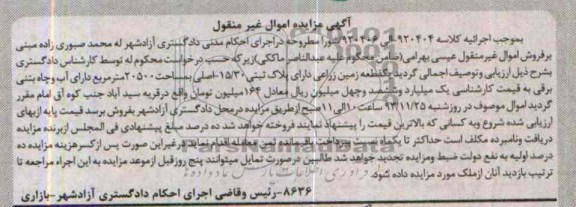 آگهی مزایده اموال غیر منقول
بموجب اجرائیه کلاسه ۹۲۰۴۰۴ الی ۹۳۰۴۰۶ شورا مطروحه دراجرای احکام مدنی دادگستری آزادشهر له محمد صبوری زاده مبنی
برفروش اموال غیرمنقول عیسی بهرامی (ضامن محکوم علیه عبدالناصر ماککی) زیرکه حسب درخواست محکوم له توسط کارشناس دادگستری
بشرح ذیل ارزیابی وتوصیف اجمالی گردید یکقطعه زمین زراعی دارای پلاک ثبتی ۱۵/۳۰-اصلی بمساحت ۲۰۵۰۰مترمربع دارای آب وچاه بتنی
برقی به قیمت کارشناسی یک میلیارد وششصد وچهل میلیون ریال معادل ۱۶۴میلیون تومان واقع درقریه سید آباد جنب کوه آق امام مقرر
گردید اموال موصوف در روزشنبه ۹۳/۱۱/۲۵ ساعت ۱۰الی ۱۱صبح ازطریق مزایده درمحل دادگستری آزادشهر بفروش برسد قیمت پایه ازبهای
ارزیابی شده شروع وبه کسانی که بالاترین قیمت را پیشنهاد نمایند فروخته خواهد شد ده درصد مبلغ پیشنهادی فی المجلس ازبرنده مزایده
دریافت ونامبرده مکلف است حداکثر تا یکماه نسبت به پرداخت باقیمانده ثمن معامله اقدام نماید ودرغیراین صورت پس ازکسرهزینه مزایده ده
درصد اولیه به نفع دولت ضبط ومزایده تجدید خواهد شد طالبین درصورت تمایل میتوانند پنج روزقبل ازموعد مزایده به این اجراء مراجعه تا
ترتیب بازدید آنان ازملک مورد مزایده داده شود.
۸۶۳۶-رئیس وقاضی اجرای احکام دادگستری آزادشهر-بازاری